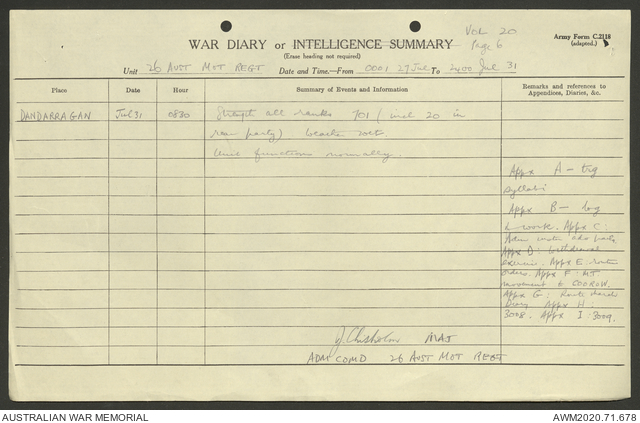 Vol 20
Page 6
Army Form C.2118
(adapted.)
WAR DIARY or INTELLIGENCE SUMMARY
(Erase heading not required)
Unit 26 AUST MOT REGT Date and Time.—From 0001 27 Jul To 2400 Jul 31
Place Date Hour Summary of Events and Information Remarks and references to
Appendices, Diaries, &c.
DANDARRAGAN Jul 31 0830 Strength all ranks 701 (incl 20 in
rear party)
Unit functions normally.
Appx A - trg
syllabi
Appx B - log
& work. Appx C:
Adm
Appx D: Withdrawal
exercise. Appx E: routine
orders. Appx F: MT
movement to COOROW.
Appx G: Route March
Diary Appx H:
3008. Appx I: 3009.
J Chisholm MAJ
ADM COMD 26 AUST MOT REGT
AUSTRALIAN WAR MEMORIAL
AWM2020.71.678